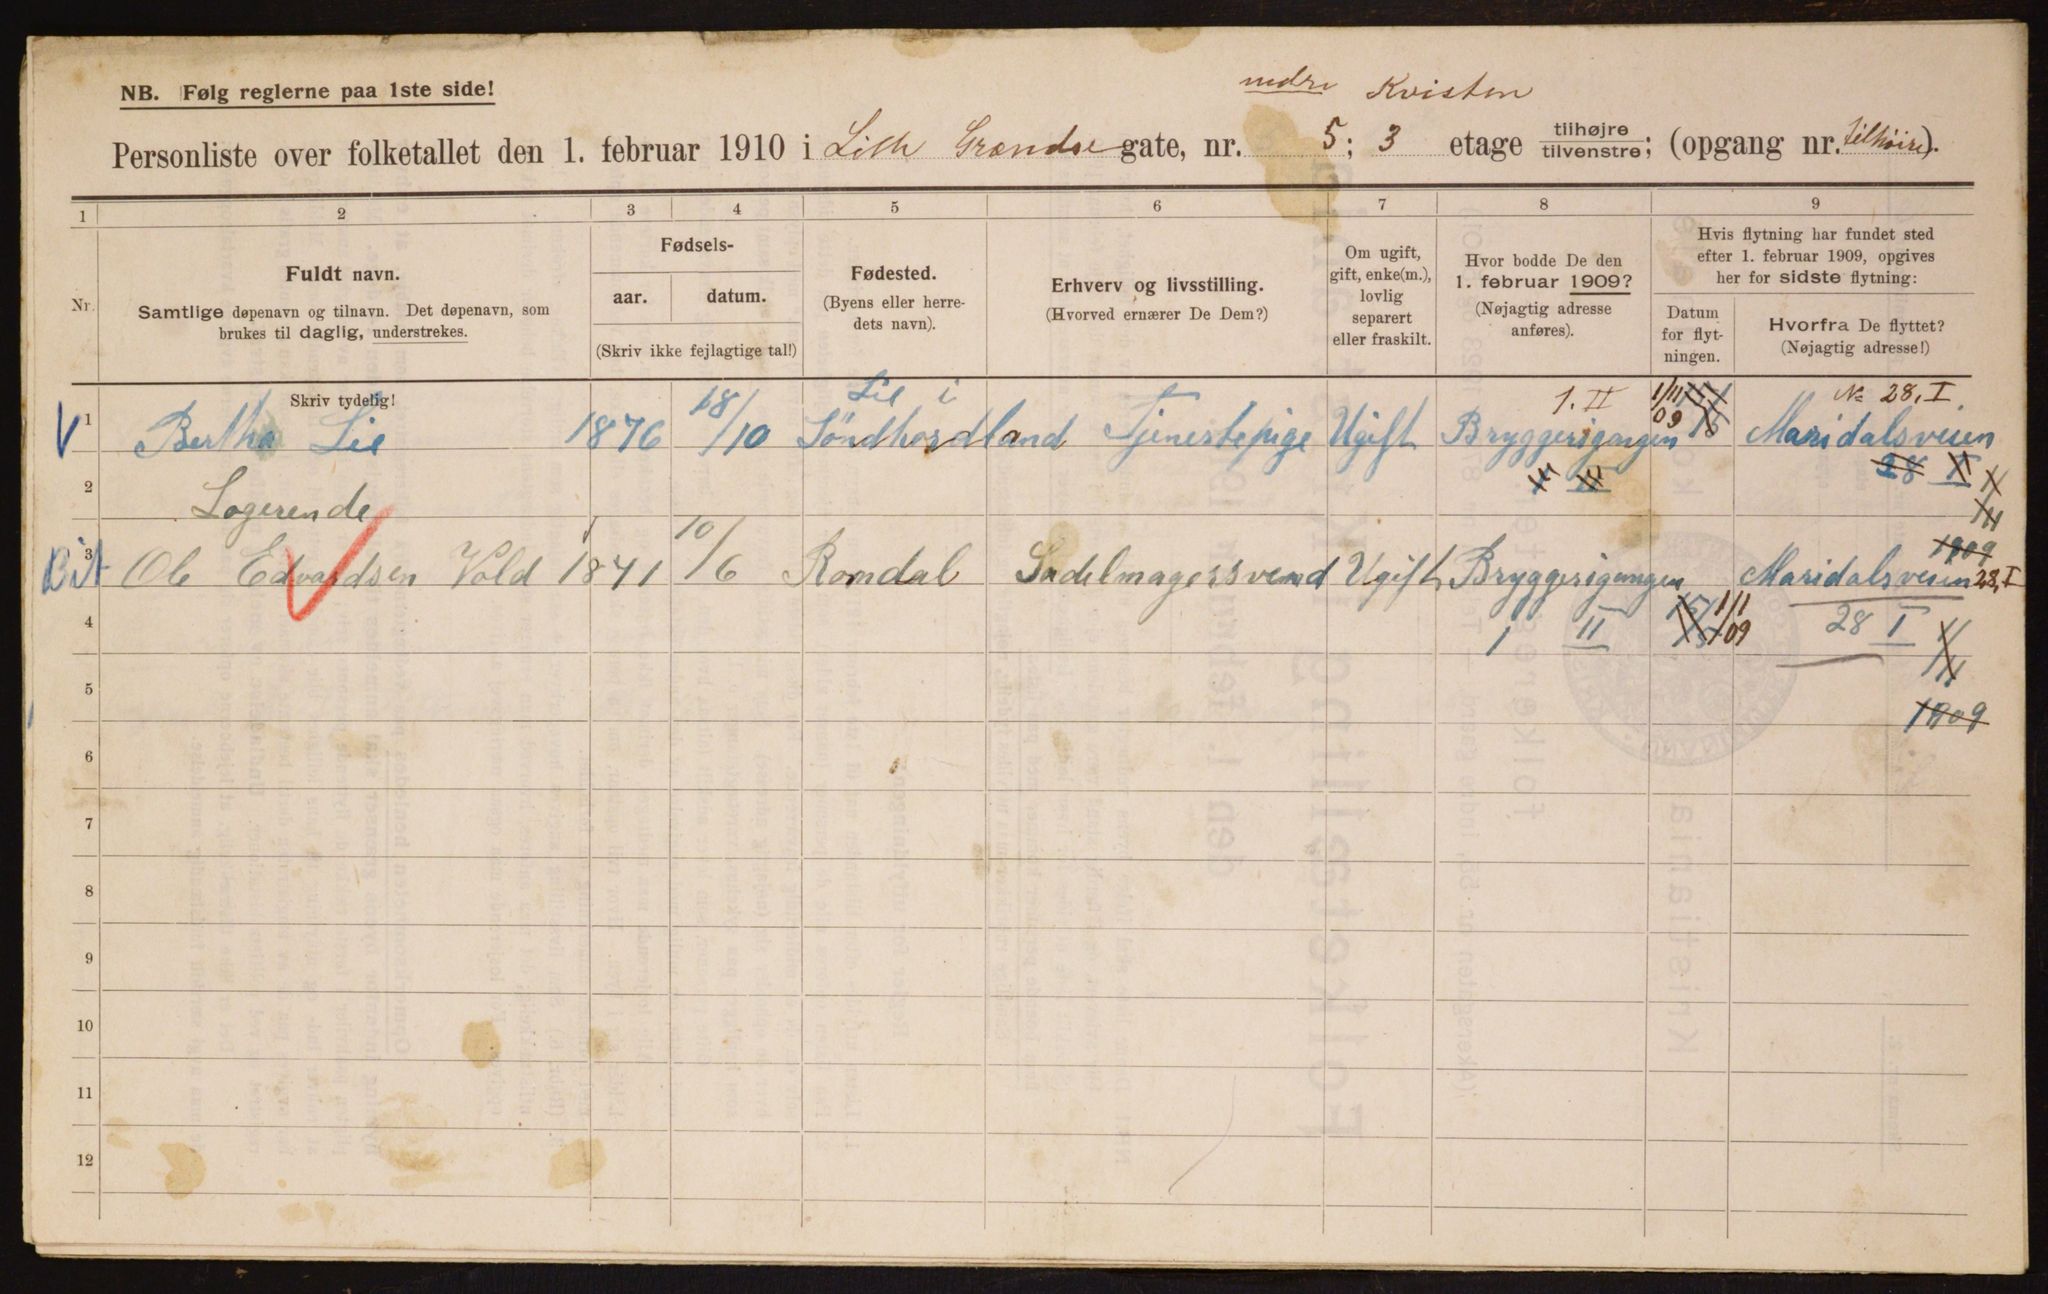 NB. Følg reglerne paa 1ste side!
nedre Kvisten
Personliste over folketallet den 1. februar 1910 i Lille Grændse gate, nr. 5; 3 etage tilhøjre tilvenstre; (opgang nr. tilhöire).
1 2 3 4 5 6 7 8 9
Nr.
Fuldt navn.
Samtlige døpenavn og tilnavn. Det døpenavn, som
brukes til daglig, understrekes.
Fødsels-
aar. datum.
(Skriv ikke fejlagtige tal!)
Fødested.
(Byens eller herre-
dets navn).
Erhverv og livsstilling.
(Hvorved ernærer De Dem?)
Om ugift,
gift, enke(m.),
lovlig
separert
eller fraskilt.
Hvor bodde De den
1. februar 1909?
(Nøjagtig adresse
anføres).
Hvis flytning har fundet sted
efter 1. februar 1909, opgives
her for sidste flytning:
Datum
for flyt-
ningen.
Hvorfra De flyttet?
(Nøjagtig adresse!)
Skriv tydelig!
Lie i 1. II 1/11 No 28, I
V 1 Bertha Lie 1876 18/10 Söndhordland Tjenestepige Ugift Bryggerigangen 09 Maridalsveien
28 I
2 Logerende
1909
Bit 3 Ole Edvardsen Vold 1871 10/6 Romdal Sadelmagersvend Ugift Bryggerigangen Maridalsveien 28, I
4 1 II 1/11 09 28 I
5
1909
6
7
8
9
10
11
12